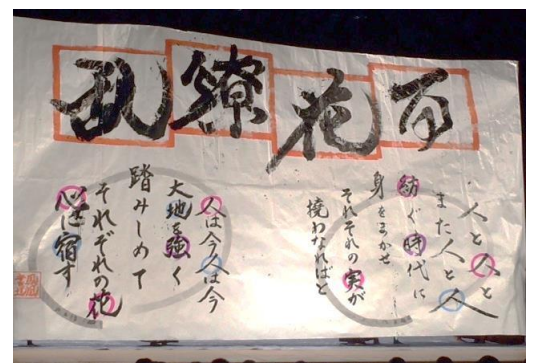 百花繚乱
人と人と
また人と人
紡ぐ時代に
身をまかせ
それぞれの実が
撓わなればと
人は今人は今
大地を強く
踏みしめて
それぞれの花
心に宿す